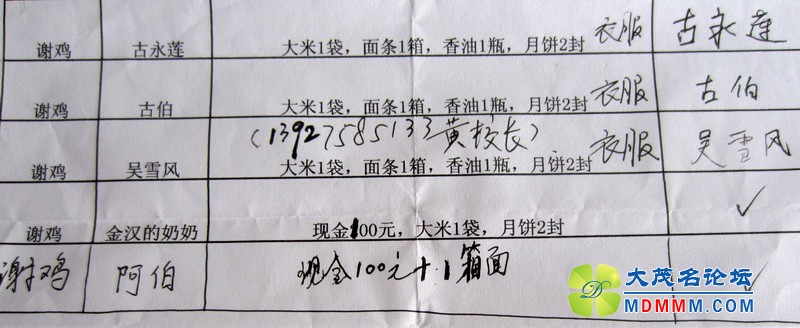 谢鸡 古永莲 大米1袋，面条1箱，香油1瓶，月饼2封 衣服 古永莲
谢鸡 古伯 大米1袋，面条1箱，香油1瓶，月饼2封 衣服 古伯
(13927585133黄校长)
谢鸡 吴雪风 大米1袋，面条1箱，香油1瓶，月饼2封 衣服 吴雪风
谢鸡 金汉的奶奶 现金100元，大米1袋，月饼2封 ✓
谢鸡 阿伯 现金100元+1箱面 ✓
大茂名论坛
MDMMM.COM